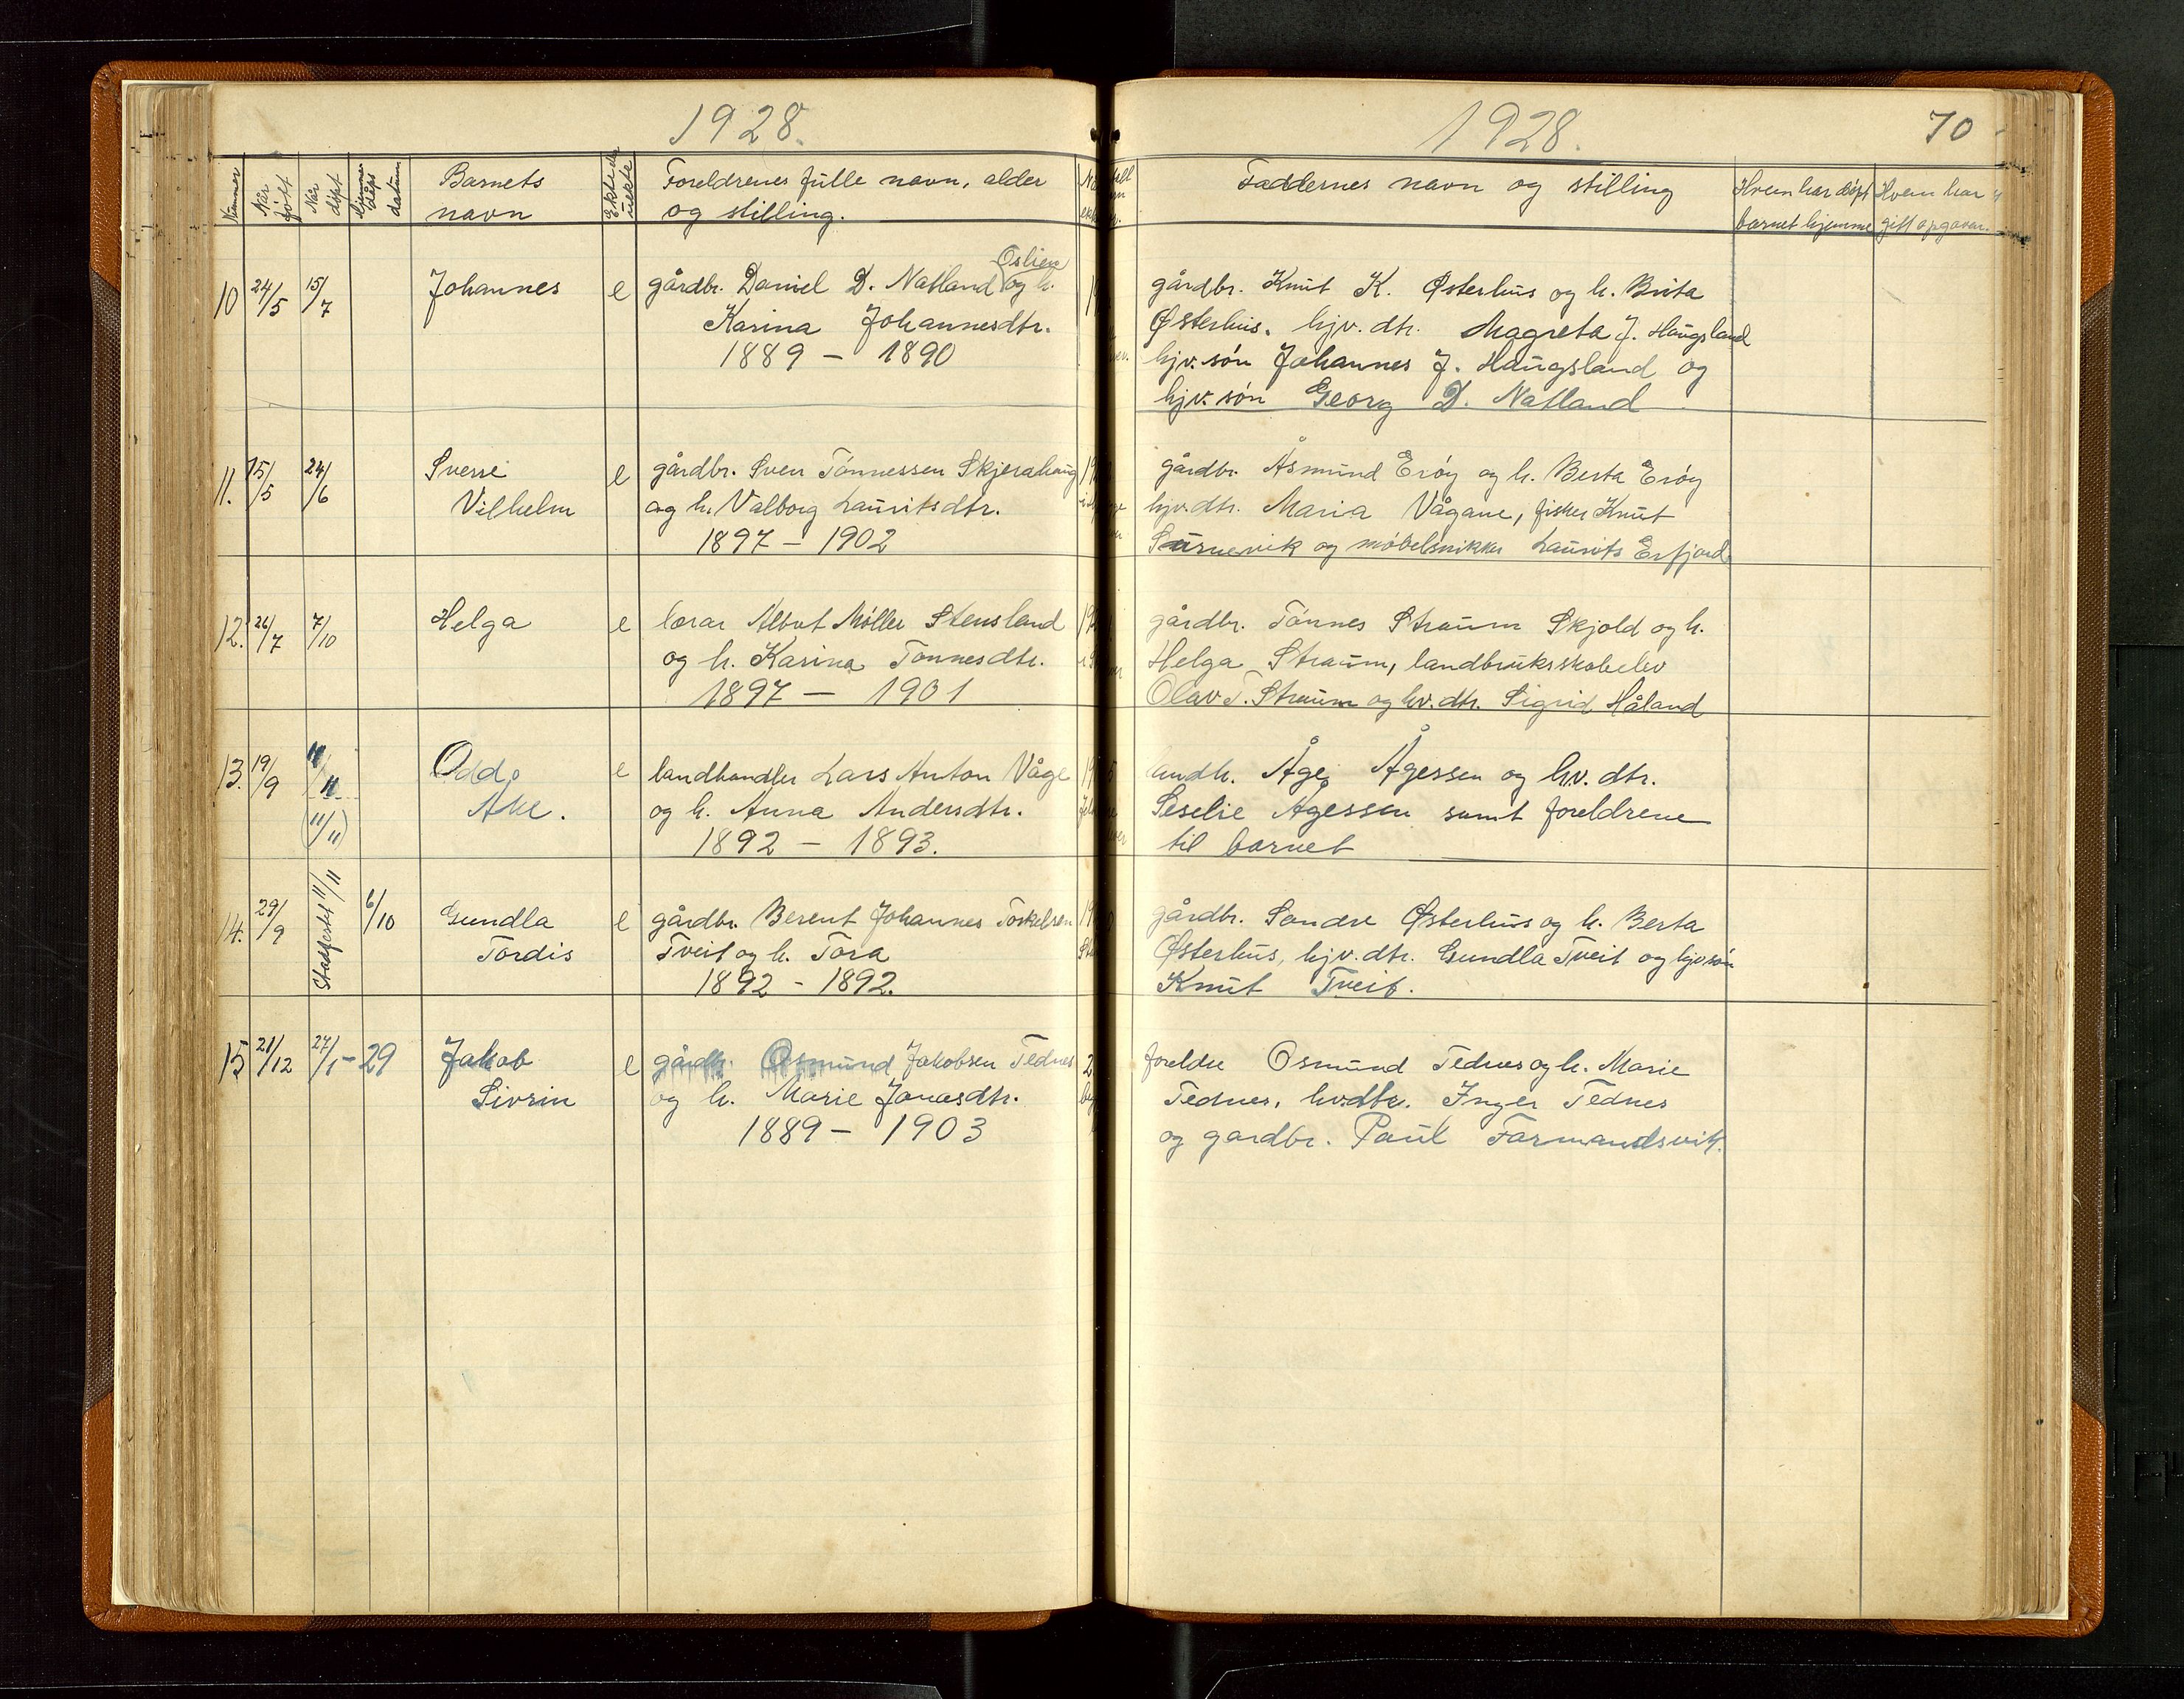 1928.
Nummer
Når født
Når døpt
Hjemmedåps datum
Barnets navn
Ekte eller uekte
Foreldrenes fulle navn, alder
og stilling.
10 24/5 15/7 Johannes e gårdbr. Daniel D. Natland Oslien og h.
Karina Johannesdtr.
1889 – 1890
11. 15/5 24/6 Sverre e gårdbr. Sven Tønnessen Skjerahaug
Vilhelm og h. Valborg Lauritsdtr.
1897 – 1902
12. 26/7 7/10 Helga e lærar Albert Møller Stensland
og h. Karina Tønnesdtr.
1897 – 1901
13. 19/9 11/11 Odd e landhandler Lars Anton Våge
(11/11) Åke. og h. Anna Andersdtr.
1892 – 1893.
14. 29/9 Stadfestet 11/11 6/10 Gundla e gårdbr. Berent Johannes Torkelsen
Tordis Tveit og h. Tora
1892 - 1892.
15 21/12 27/1-29 Jakob e gårdbr. Osmund Jakobsen Tednes
Sivrin og h. Marie Jonasdtr.
1889 – 1903
1928.
70
Faddernes navn og stilling
Hvem har døpt
barnet hjemme
Hvem har
gitt opgaven.
gårdbr. Knut K. Østerhus og h. Brita
Østerhus. hjv. dtr. Magreta J. Haugsland
hjv. søn Johannes J. Haugsland og
hjv. søn Georg D. Natland
gårdbr. Åsmund Erøy og h. Berta Erøy
hjv. dtr. Maria Vågane, fisker Knut
Surnevik og møbelsnikker Laurits Erfjord
gårdbr. Tønnes Straum Skjold og h.
Helga Straum, landbruksskoleelev
Olav T. Straum og hv. dtr. Sigrid Håland
landh. Åge Ågessen og hv. dtr.
Seselie Ågessen samt foreldrene
til barnet
gårdbr. Sondre Østerhus og h. Berta
Østerhus, hjv. dtr. Gundla Tveit og hjv søn
Knut Tveit.
foreldre Osmund Tednes og h. Marie
Tednes, hv. dtr. Inger Tednes
og gardbr. Paul Formandsvik.